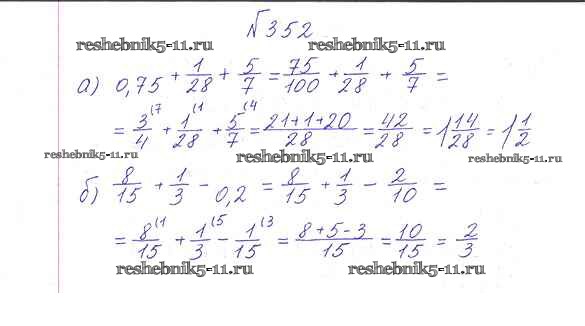 №352
reshebnik5-11.ru reshebnik5-11.ru
а) 0,75 + 1/28 + 5/7 = 75/100 + 1/28 + 5/7 =
= 3/4 (7 + 1/28 (1 + 5/7 (4 = 21+1+20/28 = 42/28 = 1 14/28 = 1 1/2
reshebnik5-11.ru reshebnik5-11.ru
б) 8/15 + 1/3 - 0,2 = 8/15 + 1/3 - 2/10 =
= 8/15 (1 + 1/3 (5 - 1/15 (3 = 8+5-3/15 = 10/15 = 2/3
reshebnik5-11.ru reshebnik5-11.ru